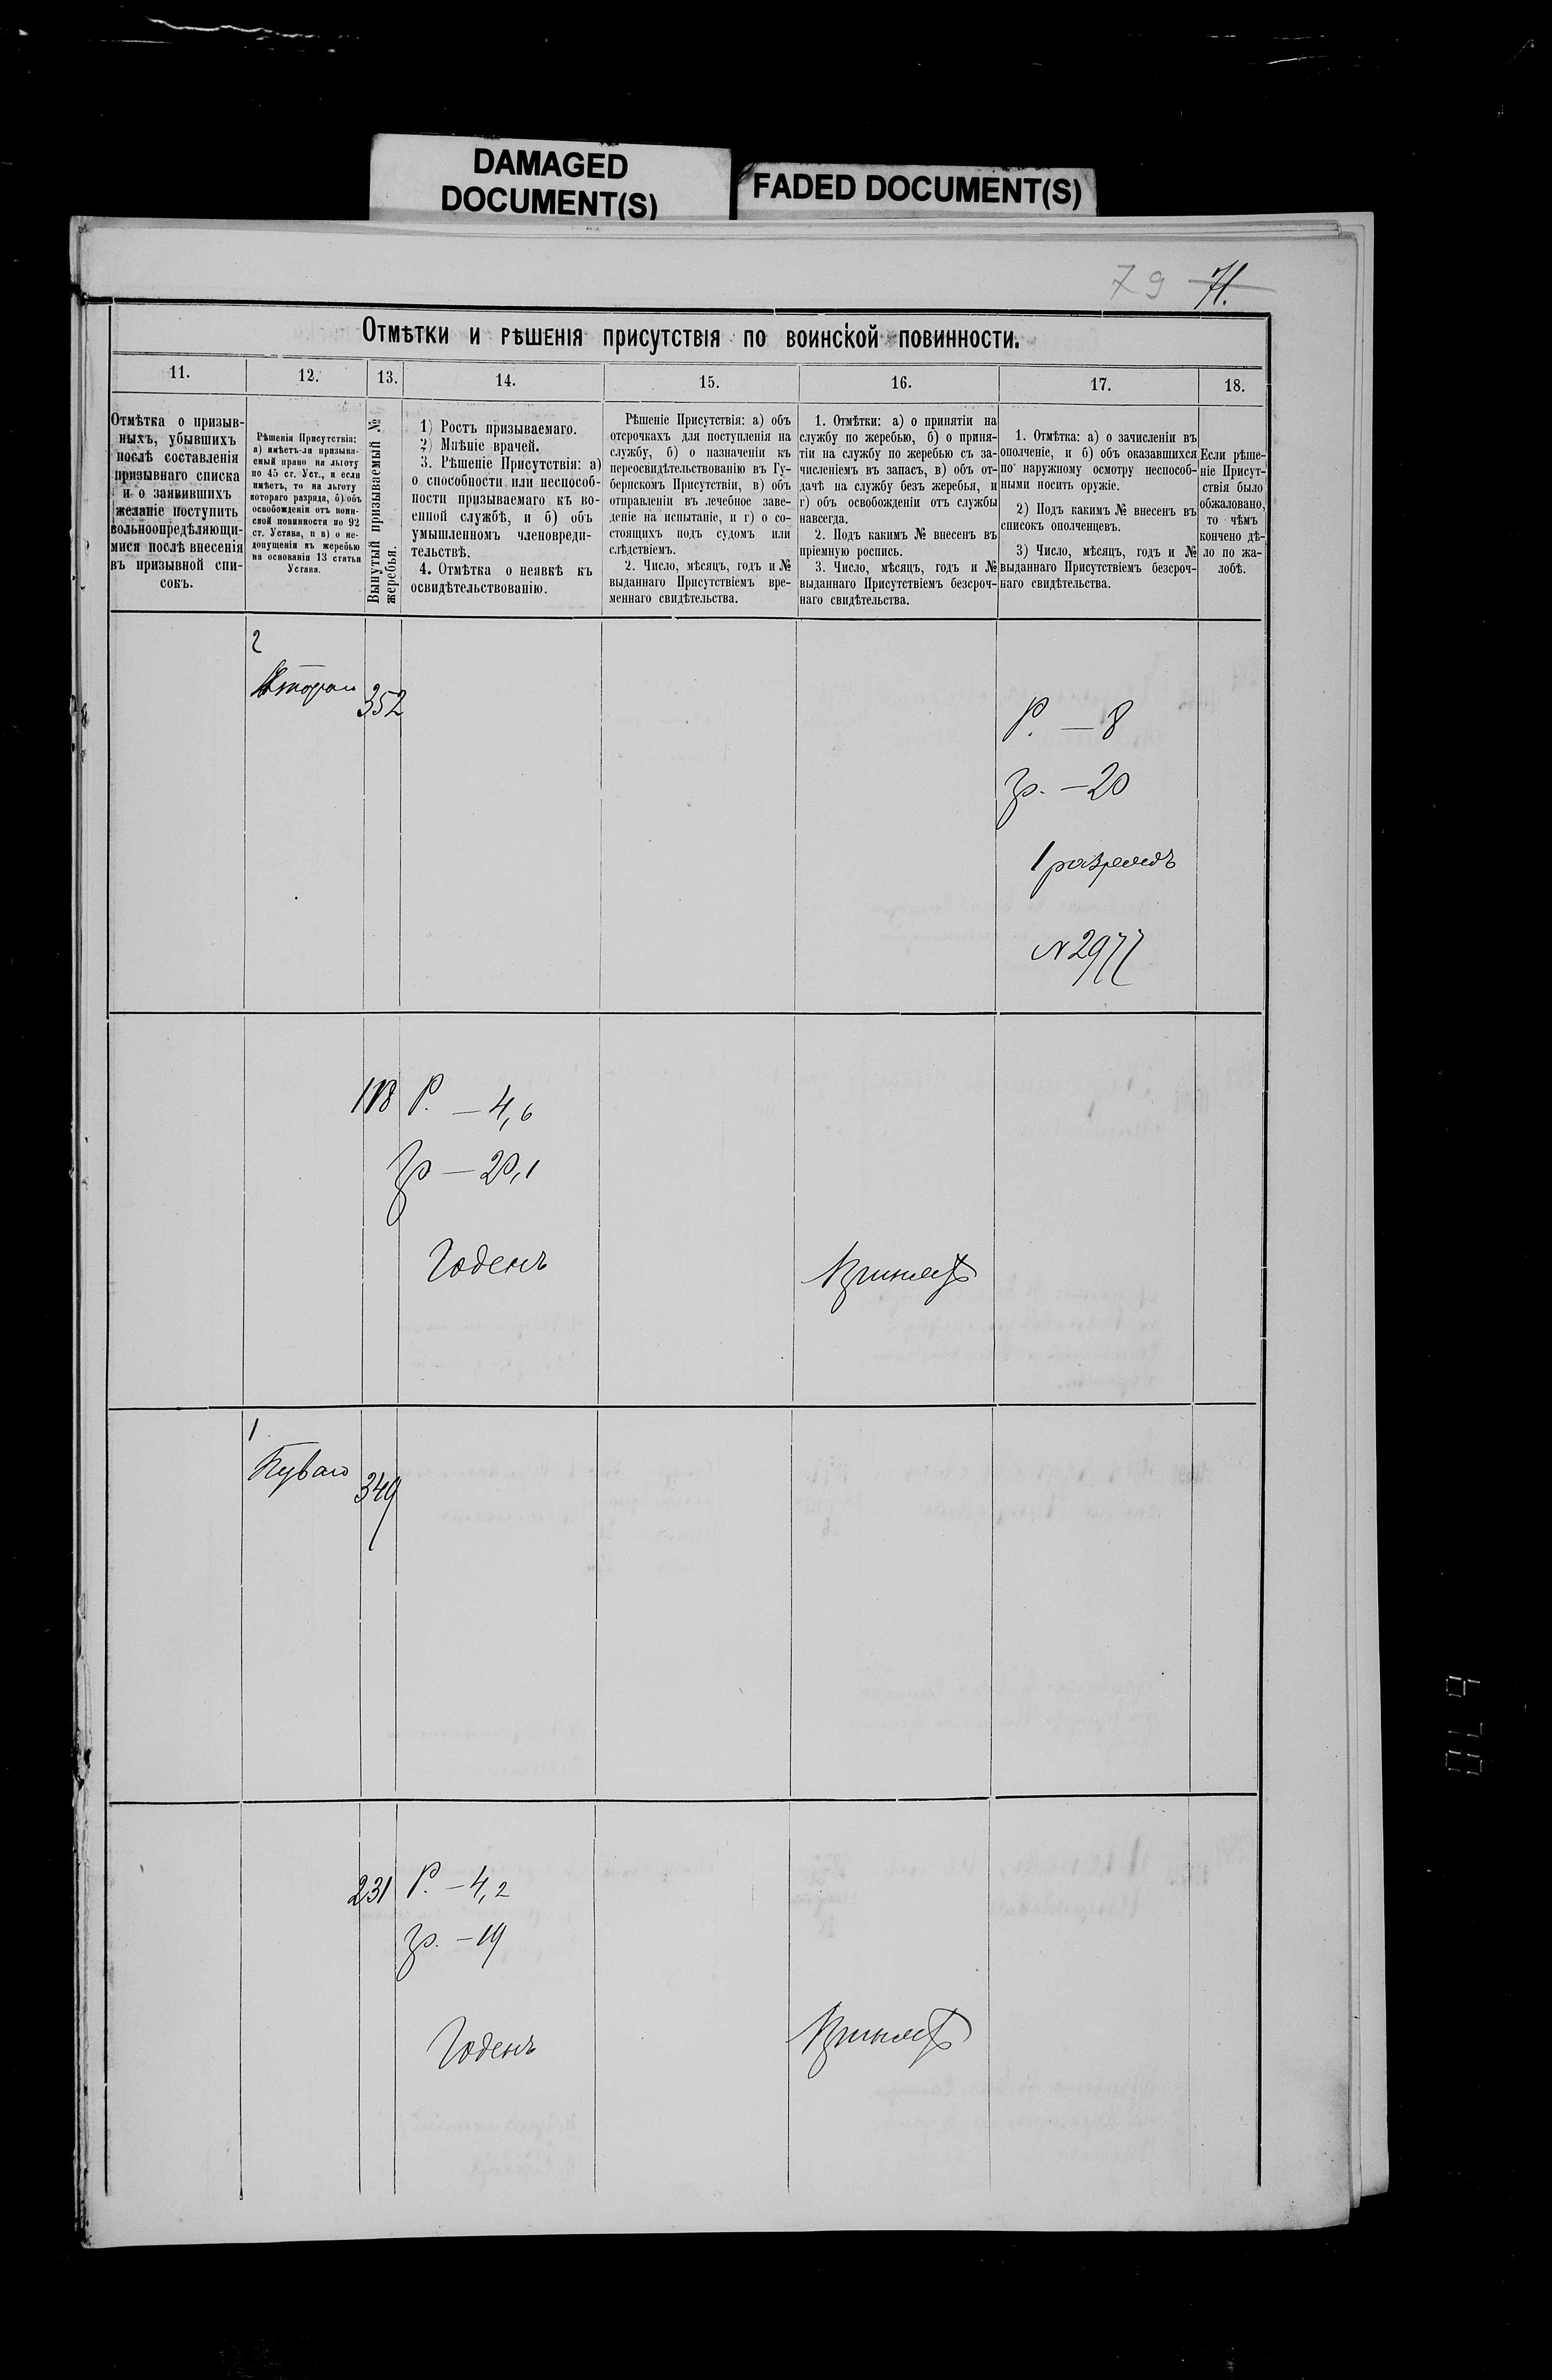 DAMAGED
DOCUMENT(S)
FADED DOCUMENT(S)
79 71.
Отмѣтки и рѣшенія присутствія по воинской повинности.
11.
12.
13.
14.
15.
16.
17.
18.
Отмѣтка о призыв-
ныхъ, убывшихъ
послѣ составленія
призывнаго списка
и о заявившихъ
желаніе поступить
вольноопредѣляющи-
мися послѣ внесенія
въ призывной спи-
сокъ.
Рѣшенія Присутствія:
а) имѣетъ-ли призыва-
емый право на льготу
по 45 ст. Уст., и если
имѣетъ, то на льготу
котораго разряда, б) объ
освобожденіи отъ воин-
ской повинности по 92
ст. Устава, и в) о не-
допущеніи къ жеребью
на основаніи 13 статьи
Устава.
Вынутый призываемый №
жеребья.
1) Ростъ призываемаго.
2) Мнѣніе врачей.
3. Рѣшеніе Присутствія: а)
о способности или неспособ-
ности призываемаго къ во-
енной службѣ, и б) объ
умышленномъ членовреди-
тельствѣ.
4. Отмѣтка о неявкѣ къ
освидѣтельствованію.
Рѣшеніе Присутствія: а) объ
отсрочкахъ для поступленія на
службу, б) о назначеніи къ
переосвидѣтельствованію въ Гу-
бернскомъ Присутствіи, в) объ
отправленіи въ лечебное заве-
деніе на испытаніе, и г) о со-
стоящихъ подъ судомъ или
слѣдствіемъ.
2. Число, мѣсяцъ, годъ и №
выданнаго Присутствіемъ вре-
меннаго свидѣтельства.
1. Отмѣтки: а) о принятіи на
службу по жеребью, б) о приня-
тіи на службу по жеребью съ за-
численіемъ въ запасъ, в) объ от-
дачѣ на службу безъ жеребья, и
г) объ освобожденіи отъ службы
навсегда.
2. Подъ какимъ № внесенъ въ
пріемную роспись.
3. Число, мѣсяцъ, годъ и №
выданнаго Присутствіемъ безсроч-
наго свидѣтельства.
1. Отмѣтка: а) о зачисленіи въ
ополченіе, и б) объ оказавшихся
по наружному осмотру неспособ-
ными носить оружіе.
2) Подъ какимъ № внесенъ въ
списокъ ополченцевъ.
3) Число, мѣсяцъ, годъ и №
выданнаго Присутствіемъ безсроч-
наго свидѣтельства.
Если рѣше-
ніе Присут-
ствія было
обжаловано,
то чѣмъ
кончено дѣ-
ло по жа-
лобѣ.
2
352
Р. — 8
гр. — 20
1 разрядъ
№ 2977
118 Р. — 4,6
гр — 20,1
Годенъ
Принятъ
1
349
231 Р. — 4,2
гр. — 19
Годенъ
Принятъ
079